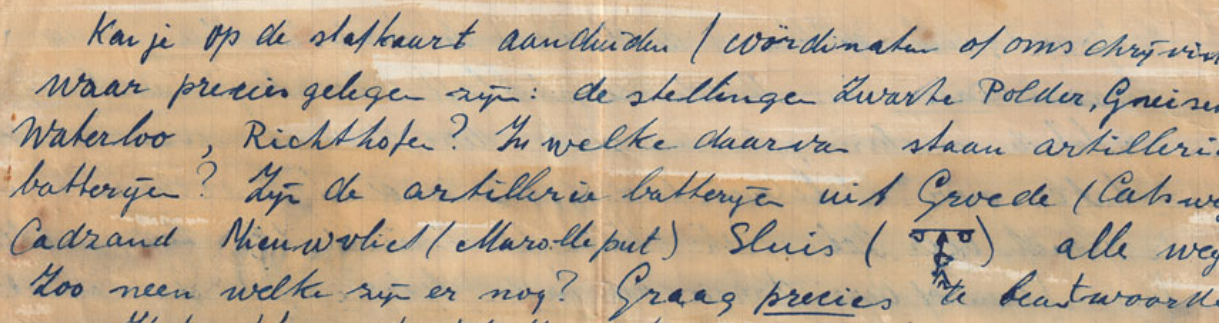 Kan je op de stafkaart aanduiden (coördinaten of omschrijvin
waar precies gelegen zijn: de stellingen Zwarte Polder, Gneisen
Waterloo, Richthofen? In welke daarvan staan artilleri
batterijen? Zijn de artillerie batterijen uit Groede (Cats we
Cadzand Nieuwvliet (Marolleput) Sluis ( ) alle weg
Zoo neen welke zijn er nog? Graag precies te beantwoorde